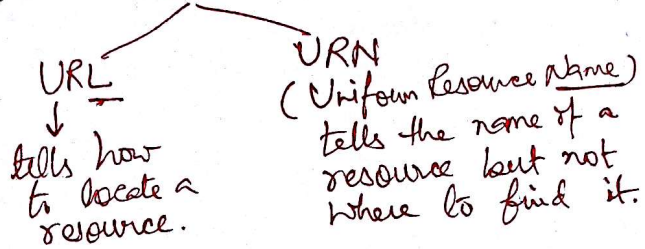 URL
↓
tells how
to locate a
resource.
URN
(Uniform Resource Name)
tells the name of a
resource but not
where to find it.